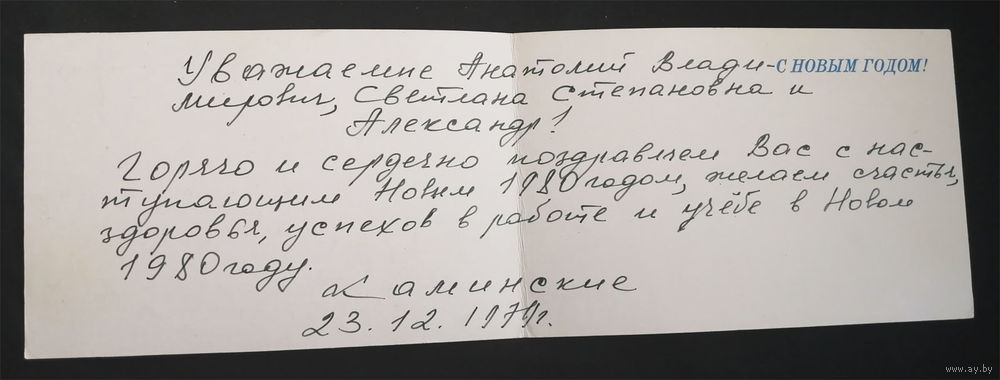 Уважаемые Анатолий Влади-
С НОВЫМ ГОДОМ!
мирович, Светлана Степановна и
Александр!
Горячо и сердечно поздравляем Вас с нас-
тупающим Новым 1980 годом, желаем счастья,
здоровья, успехов в работе и учёбе в Новом
1980 году.
Каминские
23.12.1979г.
www.ay.by